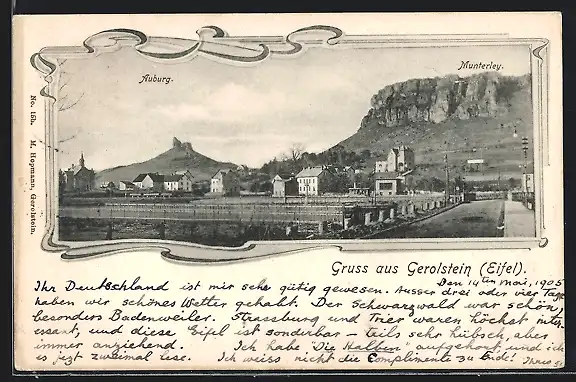 Auburg.
Munterley.
No. 15b. M. Hopmann, Gerolstein.
Gruss aus Gerolstein (Eifel).
Den 14ten Mai, 1905
Ihr Deutschland ist mir sehr gütig gewesen. Ausser drei oder vier Tage
haben wir schönes Wetter gehabt. Der Schwarzwald war schön,
besonders Badenweiler. Strassburg und Trier waren höchst inter-
essant, und diese Eifel ist sonderbar – teils sehr hübsch, aber
immer anziehend. Ich habe "Die Halben" aufgehoben und ich
es jezt zweimal lese. Ich weiss nicht die Complimente zu Ende! Ihre